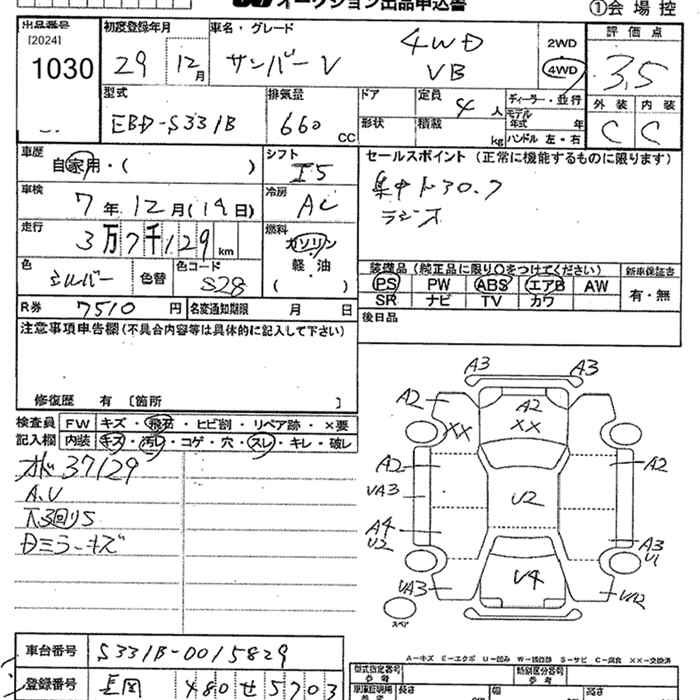 オークション出品申込書
①会場控
出品番号 初度登録年月 車名・グレード 評価点
[2024] 1030 29年 12月 サンバーV 4WD VB 2WD 4WD 3.5
型式 排気量 ドア 定員 ディーラー・並行 外装 内装
EBD-S331B 660 CC 形状 積載 4人 kg モデル年式 年 ハンドル 左・右 C C
車歴 自家用・( ) シフト I5 セールスポイント (正常に機能するものに限ります)
車検 7年12月(19日) 冷房 AC 集中ドロア
ラジオ
走行 3万7千129km 燃料 ガソリン
軽・油
( )
色 シルバー 色替 色コード S28 装備品 (純正品に限り○をつけてください) 新車保証書
PS PW ABS エアB AW 有・無
R券 7510円 名変通知期限 月 日 SR ナビ TV カワ
注意事項申告欄(不具合内容等は具体的に記入して下さい) 後日品
修復歴 有 [箇所 ]
検査員 FW キズ・飛石・ヒビ割・リペア跡・×要
記入欄 内装 キズ・汚レ・コゲ・穴・スレ・キレ・破レ
37129
A.U
下回りS
Dミラーキズ
A3 A3
A2 A2
XX XX
A2 A2
UA3 U2
A4 A3
U2 U1
UA3 U4 UA2
スペア
A-キズ E-エクボ U-凹み W-補修跡 S-サビ C-腐食 XX-交換済
車台番号 S331B-0015829
登録番号 長岡 480 せ 5703
型式指定番号 参考 類別区分番号 参考
車庫証明用 長さ 幅 高さ